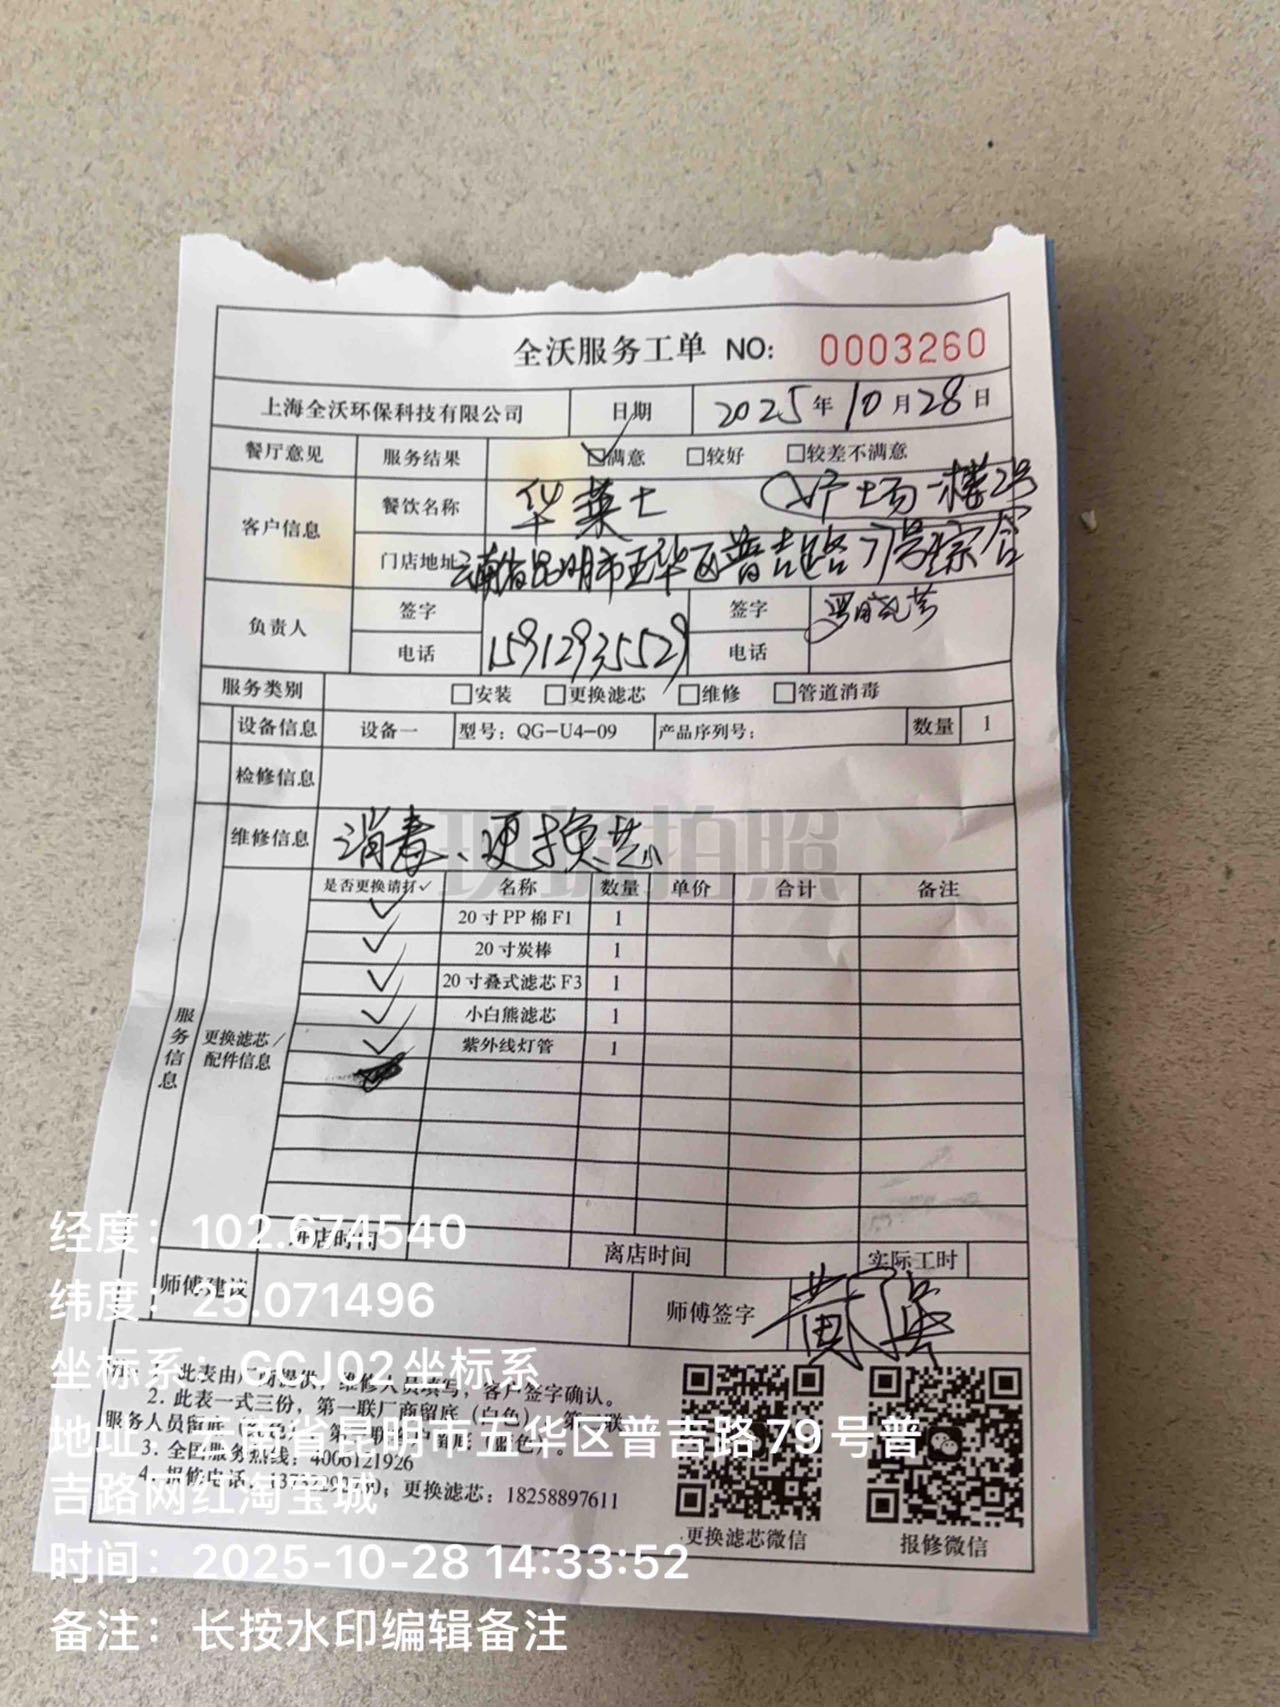 全沃服务工单 NO: 0003260
上海全沃环保科技有限公司 日期 2025年10月28日
餐厅意见 服务结果 ☑满意 □较好 □较差不满意
客户信息 餐饮名称 华莱士 广场一楼2号
门店地址 云南省昆明市五华区普吉路79号综合
负责人 签字 签字
电话 15912935529 电话
服务类别 □安装 □更换滤芯 □维修 □管道消毒
设备信息 设备一 型号：QG-U4-09 产品序列号： 数量 1
检修信息
维修信息 消毒、更换芯
现场拍照
服务信息 更换滤芯/配件信息
是否更换请打✓ 名称 数量 单价 合计 备注
✓ 20寸PP棉F1 1
✓ 20寸炭棒 1
✓ 20寸叠式滤芯F3 1
✓ 小白熊滤芯 1
✓ 紫外线灯管 1
进店时间 离店时间 实际工时
师傅建议 师傅签字
此表由厂商提供，维修人员填写，客户签字确认。
2. 此表一式三份，第一联厂商留底（白色），第二联
服务人员留底 留底（蓝色）。
3. 全国服务热线：4006121926
4. 报修电话 更换滤芯：18258897611
更换滤芯微信 报修微信
经度：102.674540
纬度：25.071496
坐标系：GCJ02坐标系
地址：云南省昆明市五华区普吉路79号普
吉路网红淘宝城
时间：2025-10-28 14:33:52
备注：长按水印编辑备注